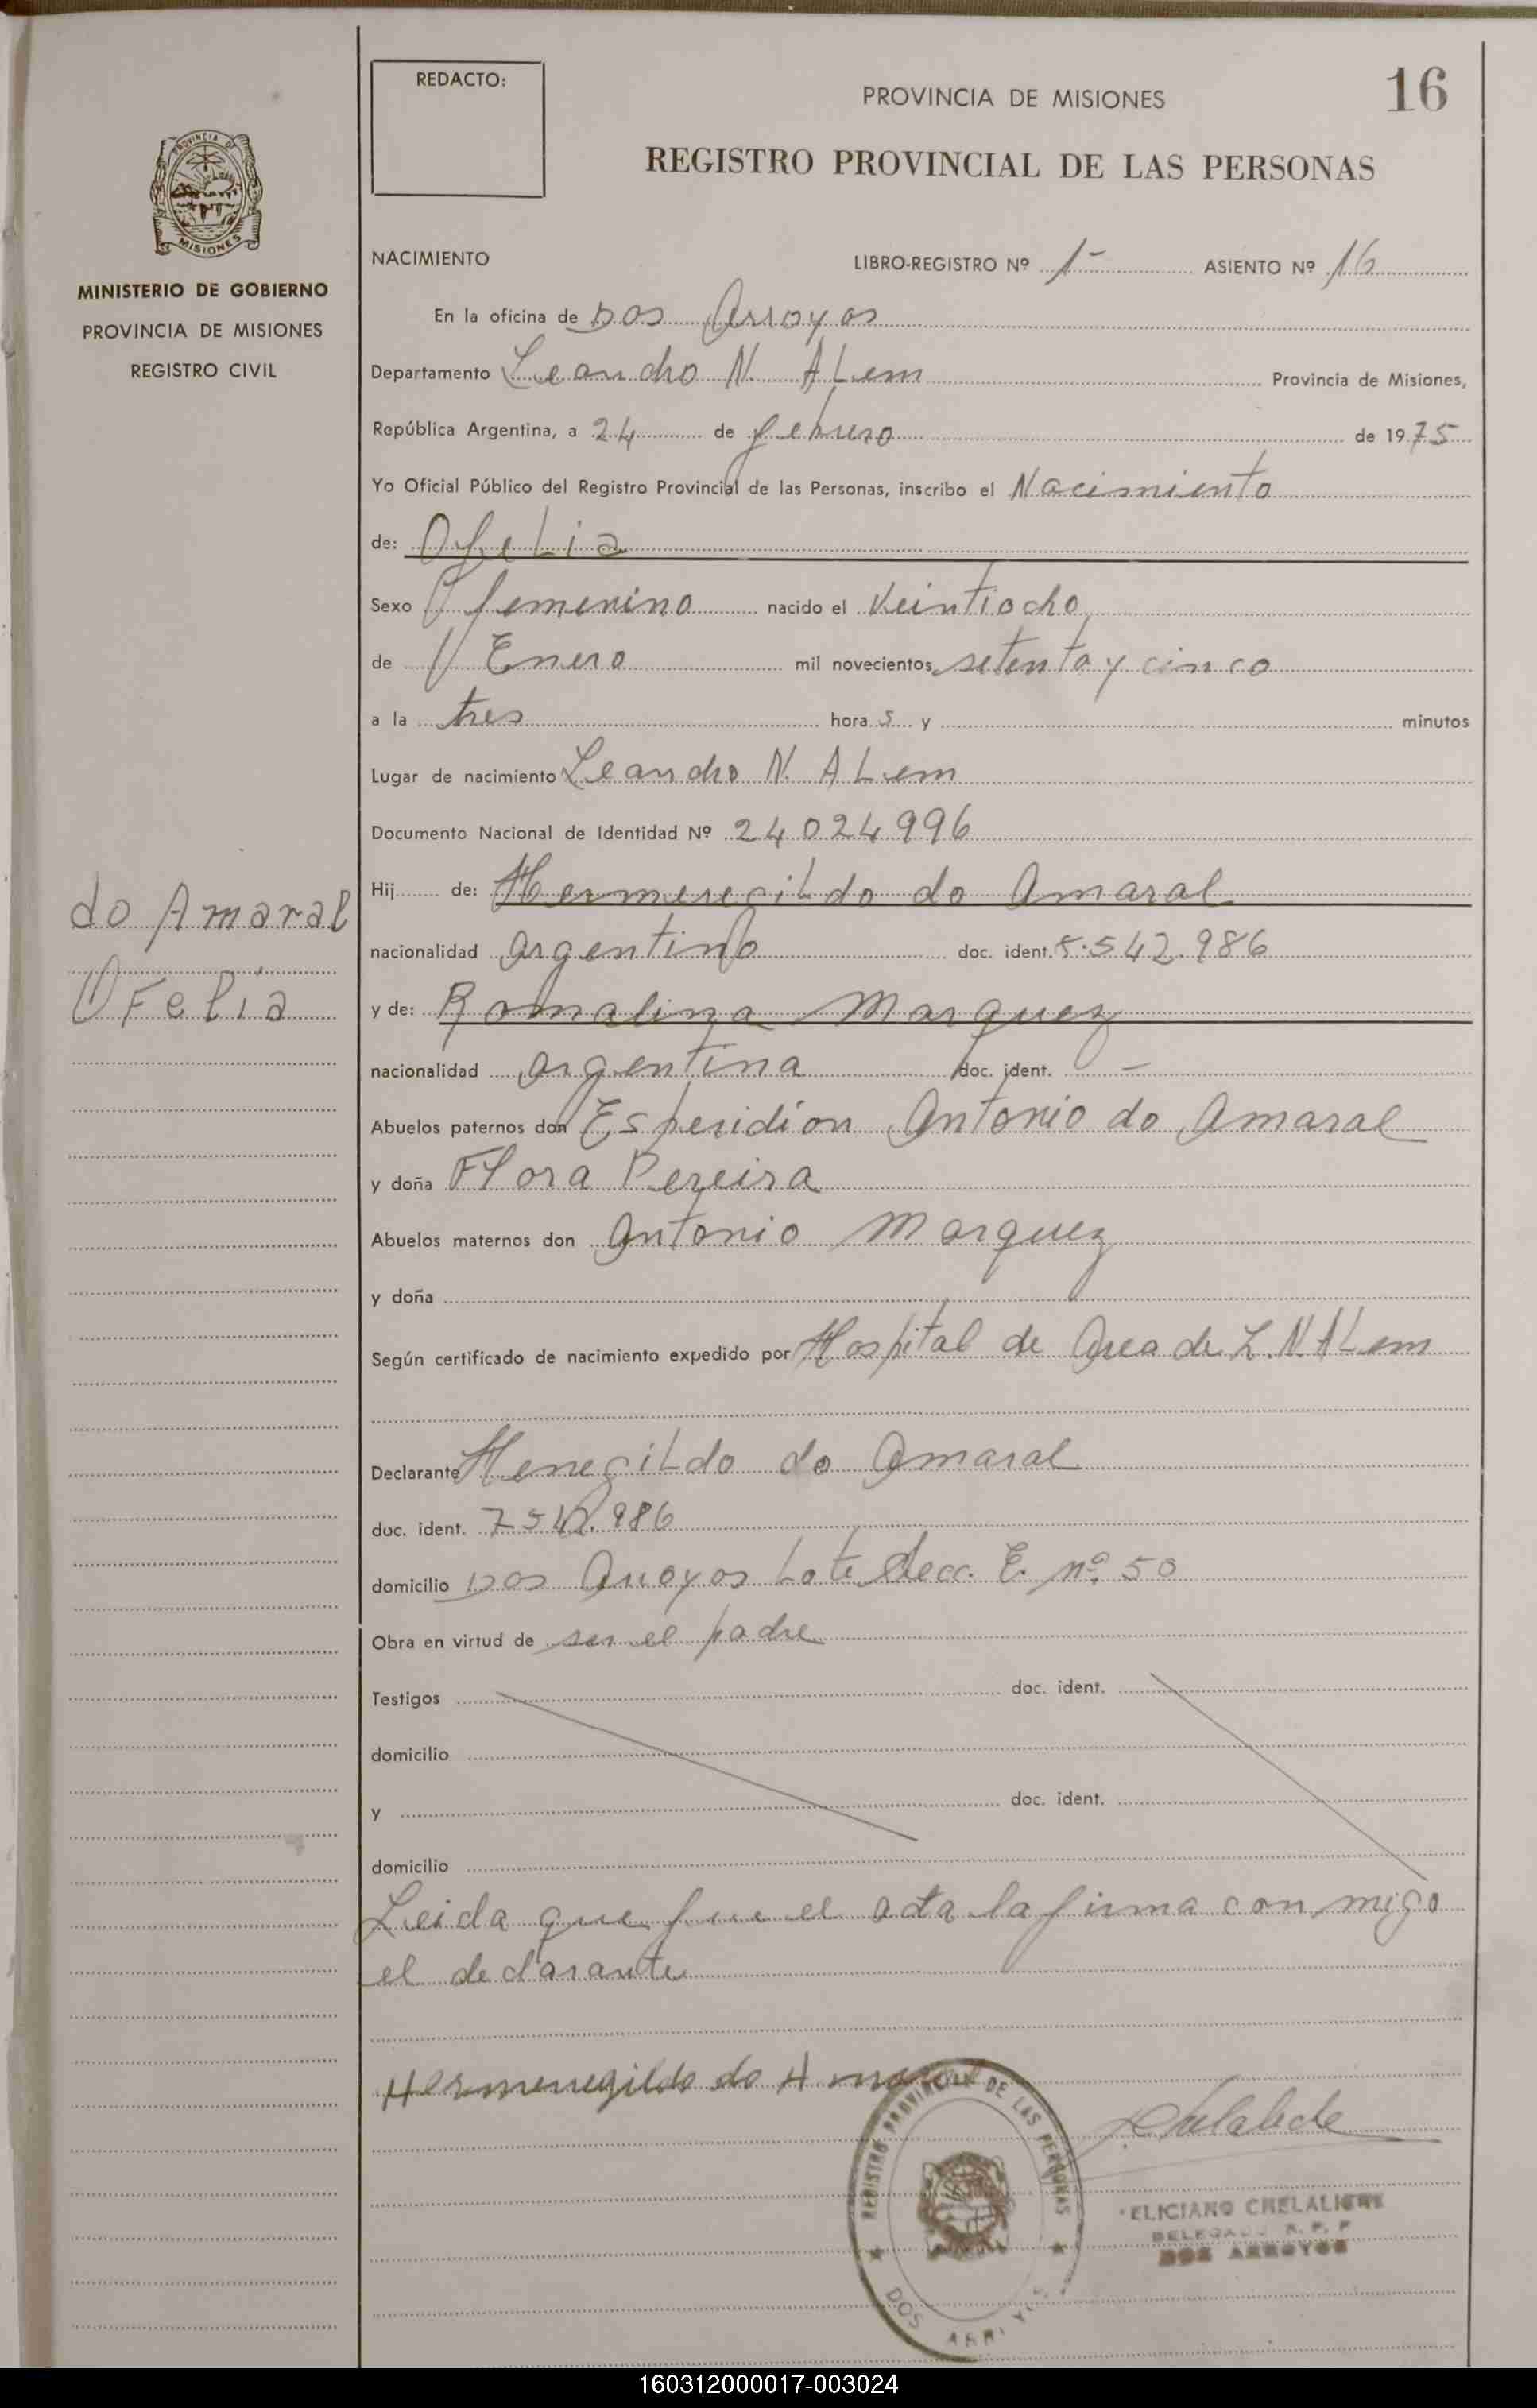 REDACTO:
PROVINCIA DE MISIONES
16
REGISTRO PROVINCIAL DE LAS PERSONAS
PROVINCIA DE
MISIONES
MINISTERIO DE GOBIERNO
PROVINCIA DE MISIONES
REGISTRO CIVIL
NACIMIENTO LIBRO-REGISTRO Nº 1- ASIENTO Nº 16
En la oficina de Dos Arroyos
Departamento Leandro N. ALem Provincia de Misiones,
República Argentina, a 24 de febrero de 1975
Yo Oficial Público del Registro Provincial de las Personas, inscribo el Nacimiento
de: OfeLia
Sexo femenino nacido el Veintiocho
de Enero mil novecientos setenta y cinco
a la tres hora s y minutos
Lugar de nacimiento Leandro N. ALem
Documento Nacional de Identidad Nº 24024996
do Amaral
OFelia
Hij de: HermenegiLdo do Amaral
nacionalidad argentino doc. ident. 5.542.986
y de: Romaliza Marquez
nacionalidad argentina doc. ident. -
Abuelos paternos don Esperidión Antonio do Amaral
y doña Flora Pereira
Abuelos maternos don Antonio Marquez
y doña
Según certificado de nacimiento expedido por Hospital de Area de L.N.ALem
Declarante HenegiLdo do Amaral
doc. ident. 7542.986
domicilio Dos Arroyos Lote Secc. E. nº 50
Obra en virtud de ser el padre
Testigos doc. ident.
domicilio
y doc. ident.
domicilio
Leida que fue el acta la firma con migo
el declarante
Hermenegildo do Amaral
REGISTRO PROVINCIAL DE LAS PERSONAS
DOS ARROYOS
ELICIANO CHELALICHE
DELEGADO R. P. P
DOS ARROYOS
160312000017-003024